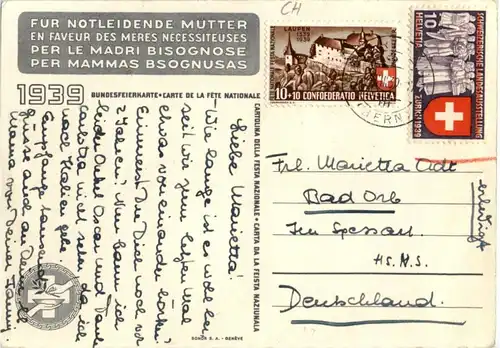 CH
FÜR NOTLEIDENDE MÜTTER
EN FAVEUR DES MÈRES NÉCESSITEUSES
PER LE MADRI BISOGNOSE
PER MAMMAS BSOGNUSAS
1939
BUNDESFEIERKARTE • CARTE DE LA FÊTE NATIONALE
CARTOLINA DELLA FESTA NAZIONALE • CARTA DA LA FEISTA NAZIUNALA
LAUPEN
1339
1939
10+10 CONFOEDERATIO HELVETICA
10
HELVETIA
SCHWEIZERISCHE LANDESAUSSTELLUNG
ZÜRICH 1939
Liebe Marietta!
Wie lange ist es wohl her
seit wir zum letzten Mal
etwas von einander hörten?
Erinnerst Du Dich noch an
Italien? Nun kann ich
leider Onkel Oscar und Tante
nicht sehen da ich
nach Italien gehe.
Empfange tausend
Grüsse auch an
Mama von Deiner
Frl. Marietta Adt
Bad Orb
Im Spessart
Hs. N. S.
Deutschland.
erledigt
SONOR S. A. - GENÈVE